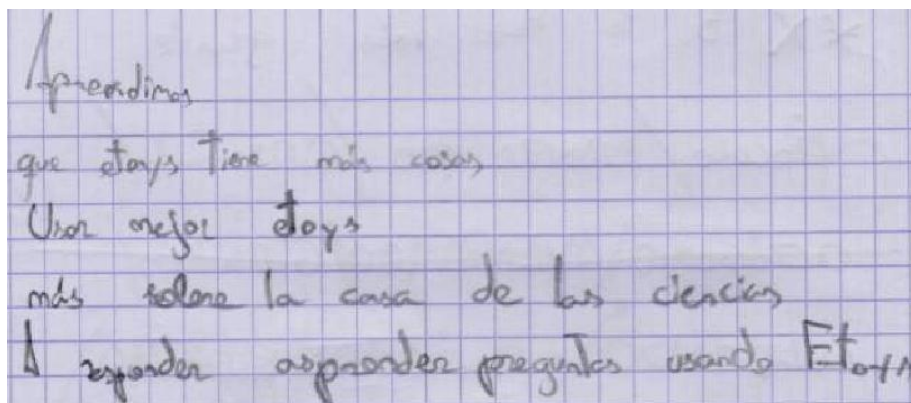 Aprendimos
que etoys tiene más cosas
Usar mejor etoys
más sobre la casa de las ciencias
A responder aspronder preguntas usando Etoys